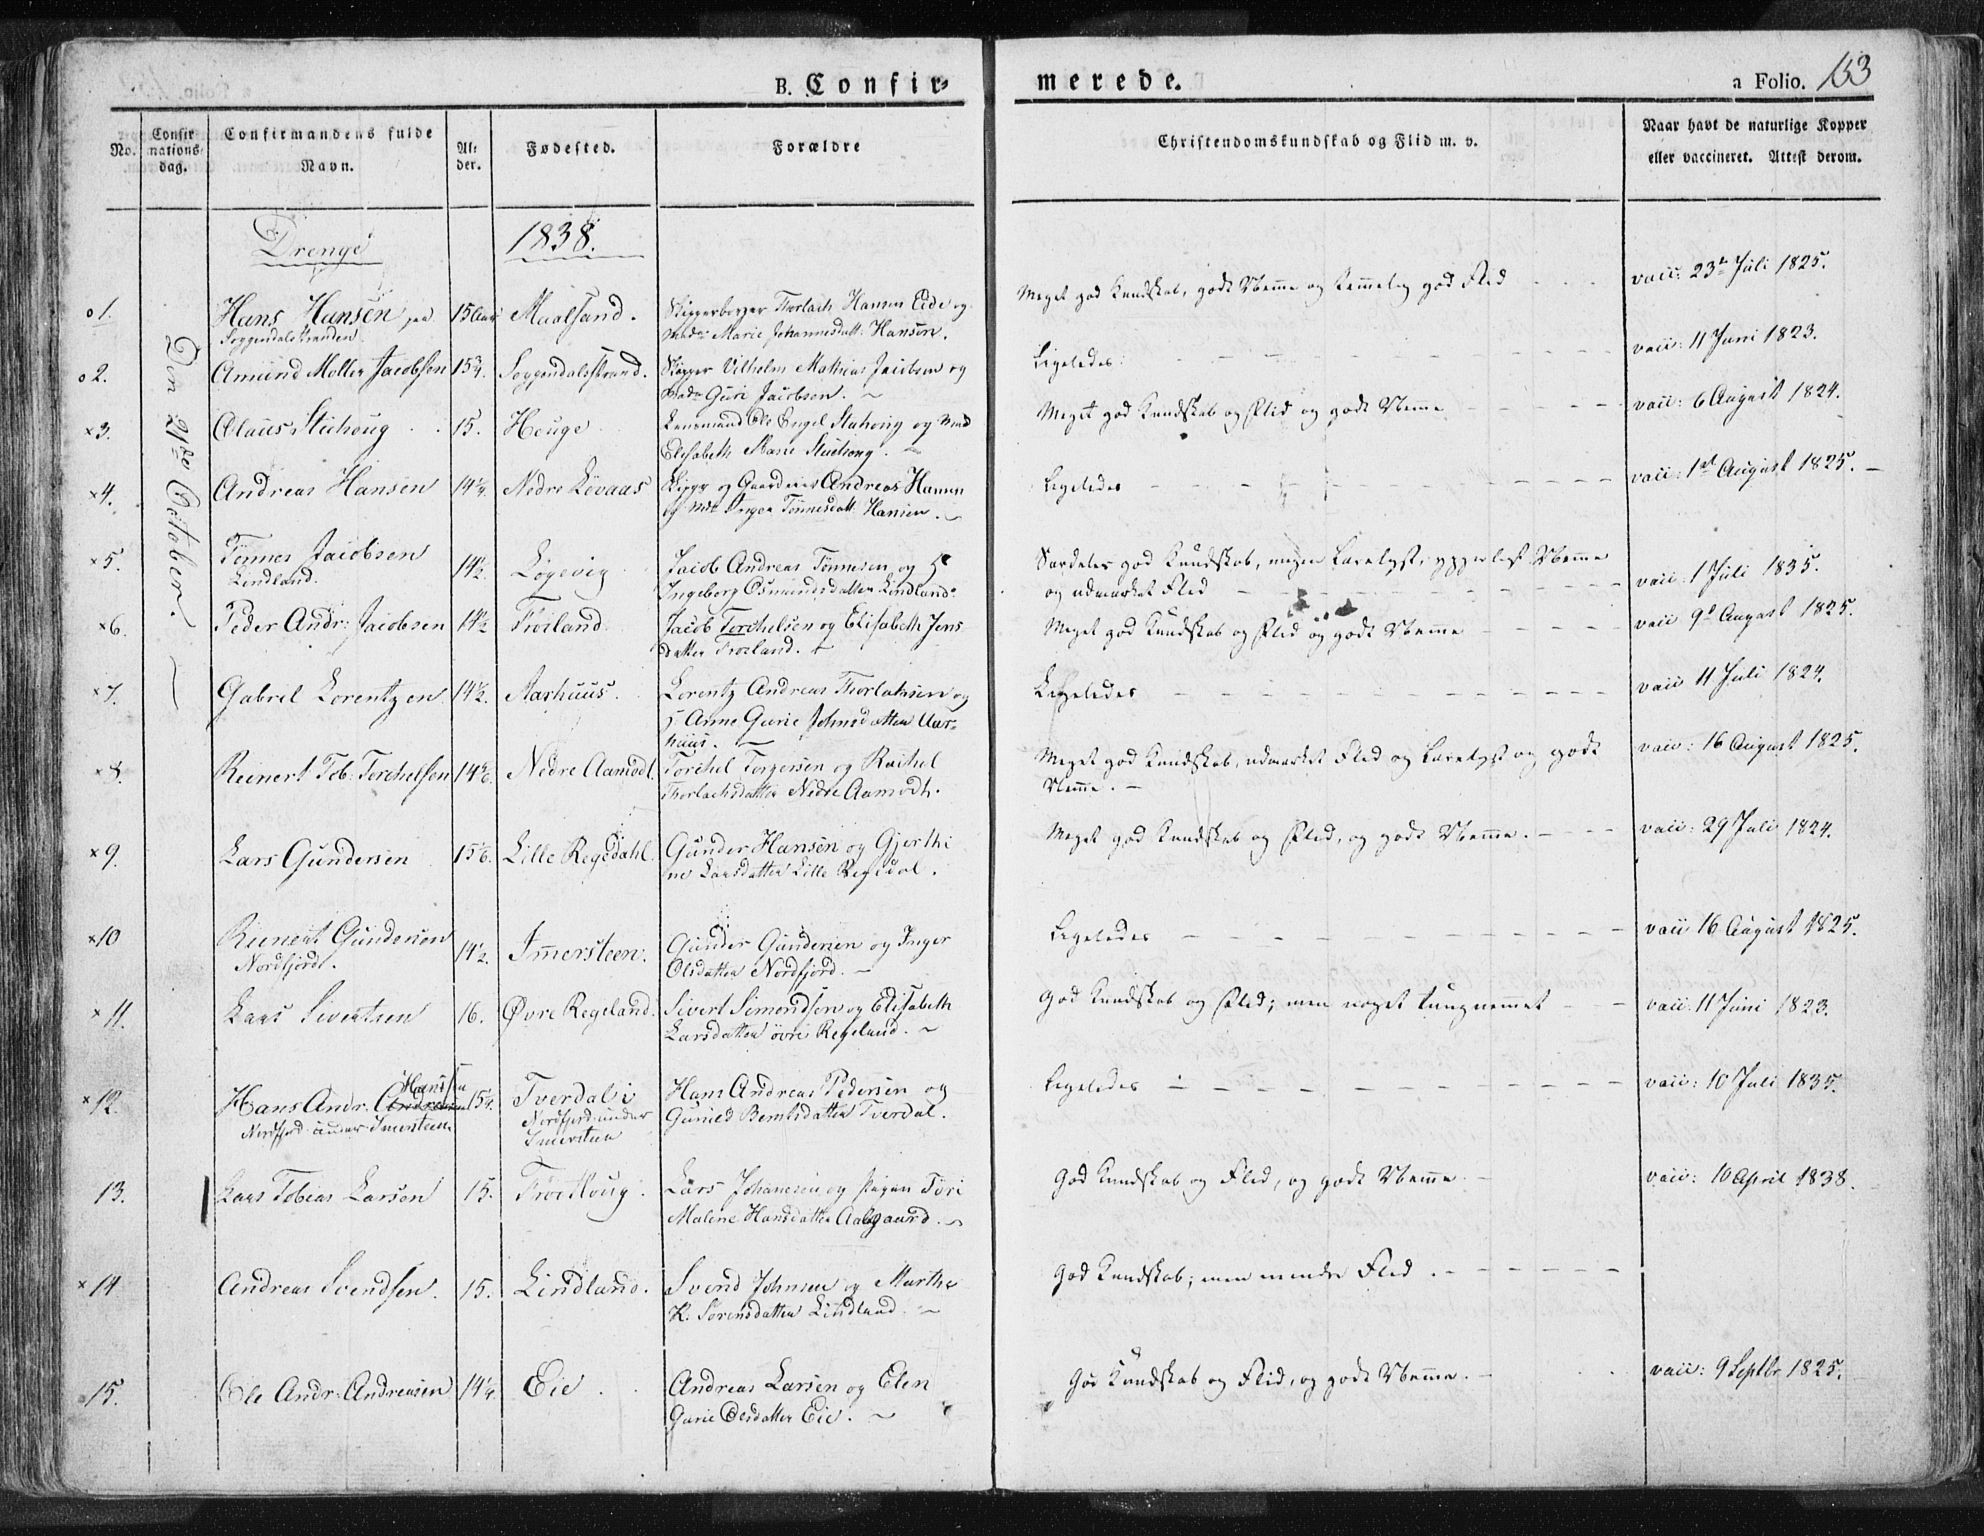 B. Confir-
merede.
a Folio. 153
No.
Confir
nations-
dag.
Confirmandens fulde
Navn.
Al-
der.
Fødested.
Forældre
Christendomskundskab og Flid m. v.
Naar havt de naturlige Kopper
eller vaccineret. Attest derom.
Drenge
1838.
Den 21de October.
o 1. Hans Hansen paa 15 Aar Maalsand. Skipperborger Thorlach Hansen Eide og Meget god Kundskab, godt Nemme og temmelig god Flid vacc: 23de Juli 1825.
Soggendalstranden Mad: Marie Johannesdatt. Hansen.
o 2. Amund Moller Jacobsen 15¾. Soggendalsstrand. Skipper Vilhelm Mathias Jacobsen og Ligeledes. vacc: 11 Juni 1823.
Mad: Guri Jacobsen.
x 3. Claus Stuhoug 15. Houge Lensmand Ole Engel Stuhoug og Mad Meget god Kundskab og Flid og godt Nemme vacc: 6 August 1824.
Elisabeth Marie Stuhoug.
x 4. Andreas Hansen 14¼. Nedre Løvaas Skippr og Gaardeier Andreas Hansen Ligeledes vacc: 1st August 1825.
og Md: Inger Tønnesdatt. Hansen.
x 5. Tønnes Jacobsen 14½. Løgevig Jacob Andreas Tønnesen og Særdeles god Kundskab, megen Lærelyst, ypperligt Nemme vacc: 1 Juli 1835.
Lindland. Ingeborg Osmundsdatter Lindland. og udmærket Flid
x 6. Peder Andr: Jacobsen 14½ Frøiland Jacob Torchelsen og Elisabeth Jens Meget god Kundskab og Flid og godt Nemme vacc 9d August 1825.
datter Frøiland.
x 7. Gabril Lorentzen 14½. Aarhuus. Lorentz Andreas Thorlaksen og Ligeledes vacc 11 Juli 1824.
Anne Gurie Johnsdatter Aar-
huus.
x 8. Reinert Tob: Torchelsen 14 Nedre Aamodt. Torchel Torgersen og Rachel Meget god Kundskab, udmærket Flid og Lærelyst og godt vacc: 16 August 1825.
Thorlachsdatter Nedre Aamodt. Nemme.
x 9. Lars Gundersen 15 Lille Regedahl. Gunder Hansen og Gjerthi Meget god Kundskab og Flid, og godt Nemme. vacc: 29 Juli 1824.
ne Larsdatter Lille Regedal.
x 10 Reinert Gundersen 14½. Immersteen. Gunder Gundersen og Inger Ligeledes vacc 16 August 1825.
Nordfjord. Olsdatter Nordfjord.
x 11. Lars Sivertsen 16. Øvre Regeland. Sivert Simondsen og Elisabeth God Kundskab og Flid; men noget tungnemmet vacc: 11 Juni 1823.
Larsdatter øvre Regeland.
Hansen
x 12. Hans Andr. Andreasen 15¼. Tverdal i Hans Andreas Pedersen og Ligeledes vacc: 10 Juli 1835.
Nordfjord under Imersteen Nordfjord under Gunild Berntsdatter Tverdal.
Imersteen
13. Lars Tobias Larsen 15. Frøethoug. Lars Johanesen og Pigen Tøri God Kundskab og Flid, og godt Nemme vacc: 10 April 1838.
Malene Hansdatter Aabgaard.
x 14 Andreas Svendsen. 15. Lindland. Svend Johnsen og Marthe God Kundskab; men mindre Flid.
K. Sørensdatter Lindland.
15. Ole Andr: Andreasen 14¼. Eie Andreas Larsen og Elen God Kundskab og Flid, og godt Nemme. vacc: 9 Septbr 1825.
Gurie Olesdatter Eie.